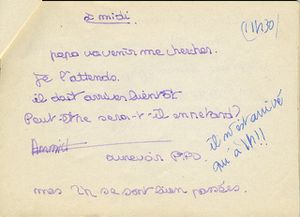 à midi.
(11h30)
papa va venir me chercher.
Je l'attends.
il doit arriver bientôt
Peut être sera-t-il en retard?
aurevoir
il n'est arrivé
qu'à 1h!!
mes 2h se sont bien passées.